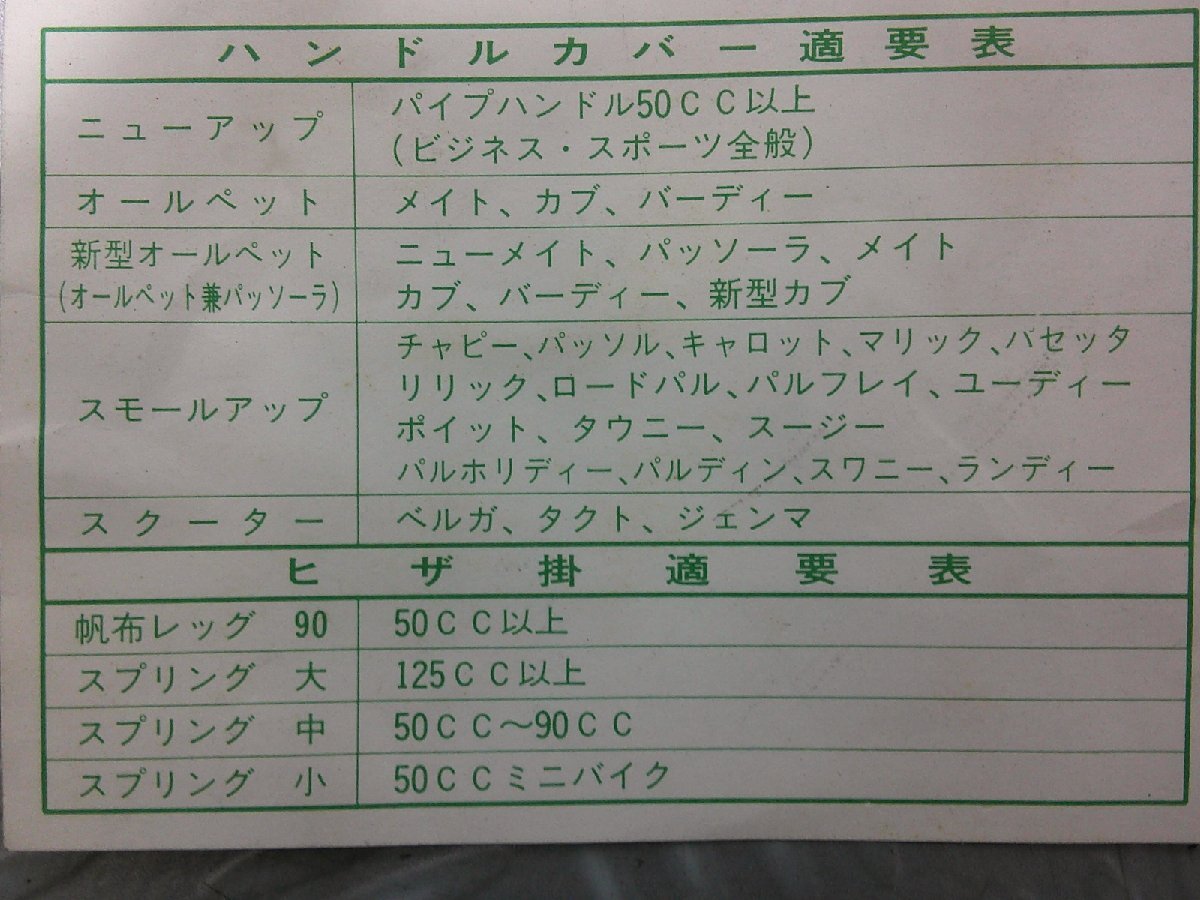 ハンドルカバー適要表
ニューアップ
パイプハンドル50CC以上
(ビジネス・スポーツ全般)
オールペット
メイト、カブ、バーディー
新型オールペット
(オールペット兼パッソーラ)
ニューメイト、パッソーラ、メイト
カブ、バーディー、新型カブ
スモールアップ
チャピー、パッソル、キャロット、マリック、パセッタ
リリック、ロードパル、パルフレイ、ユーディー
ポイット、タウニー、スージー
パルホリディー、パルディン、スワニー、ランディー
スクーター
ベルガ、タクト、ジェンマ
ヒザ掛適要表
帆布レッグ 90
50CC以上
スプリング 大
125CC以上
スプリング 中
50CC〜90CC
スプリング 小
50CCミニバイク